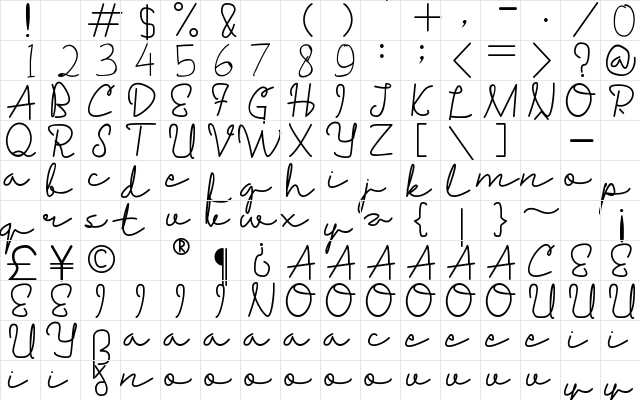 ! # $ % & ( ) + , - . / 0
1 2 3 4 5 6 7 8 9 : ; < = > ? @
A B C D E F G H I J K L M N O P
Q R S T U V W X Y Z [ \ ] -
a b c d e f g h i j k l m n o p
q r s t u v w x y z { | } ~ ¡
£ ¥ © ® ¶ ¿ A A A A A A C E E
E E I I I I N O O O O O U U U
U Y ß a a a a a a c e e e e i i
i i n o o o o o o u u u u y y